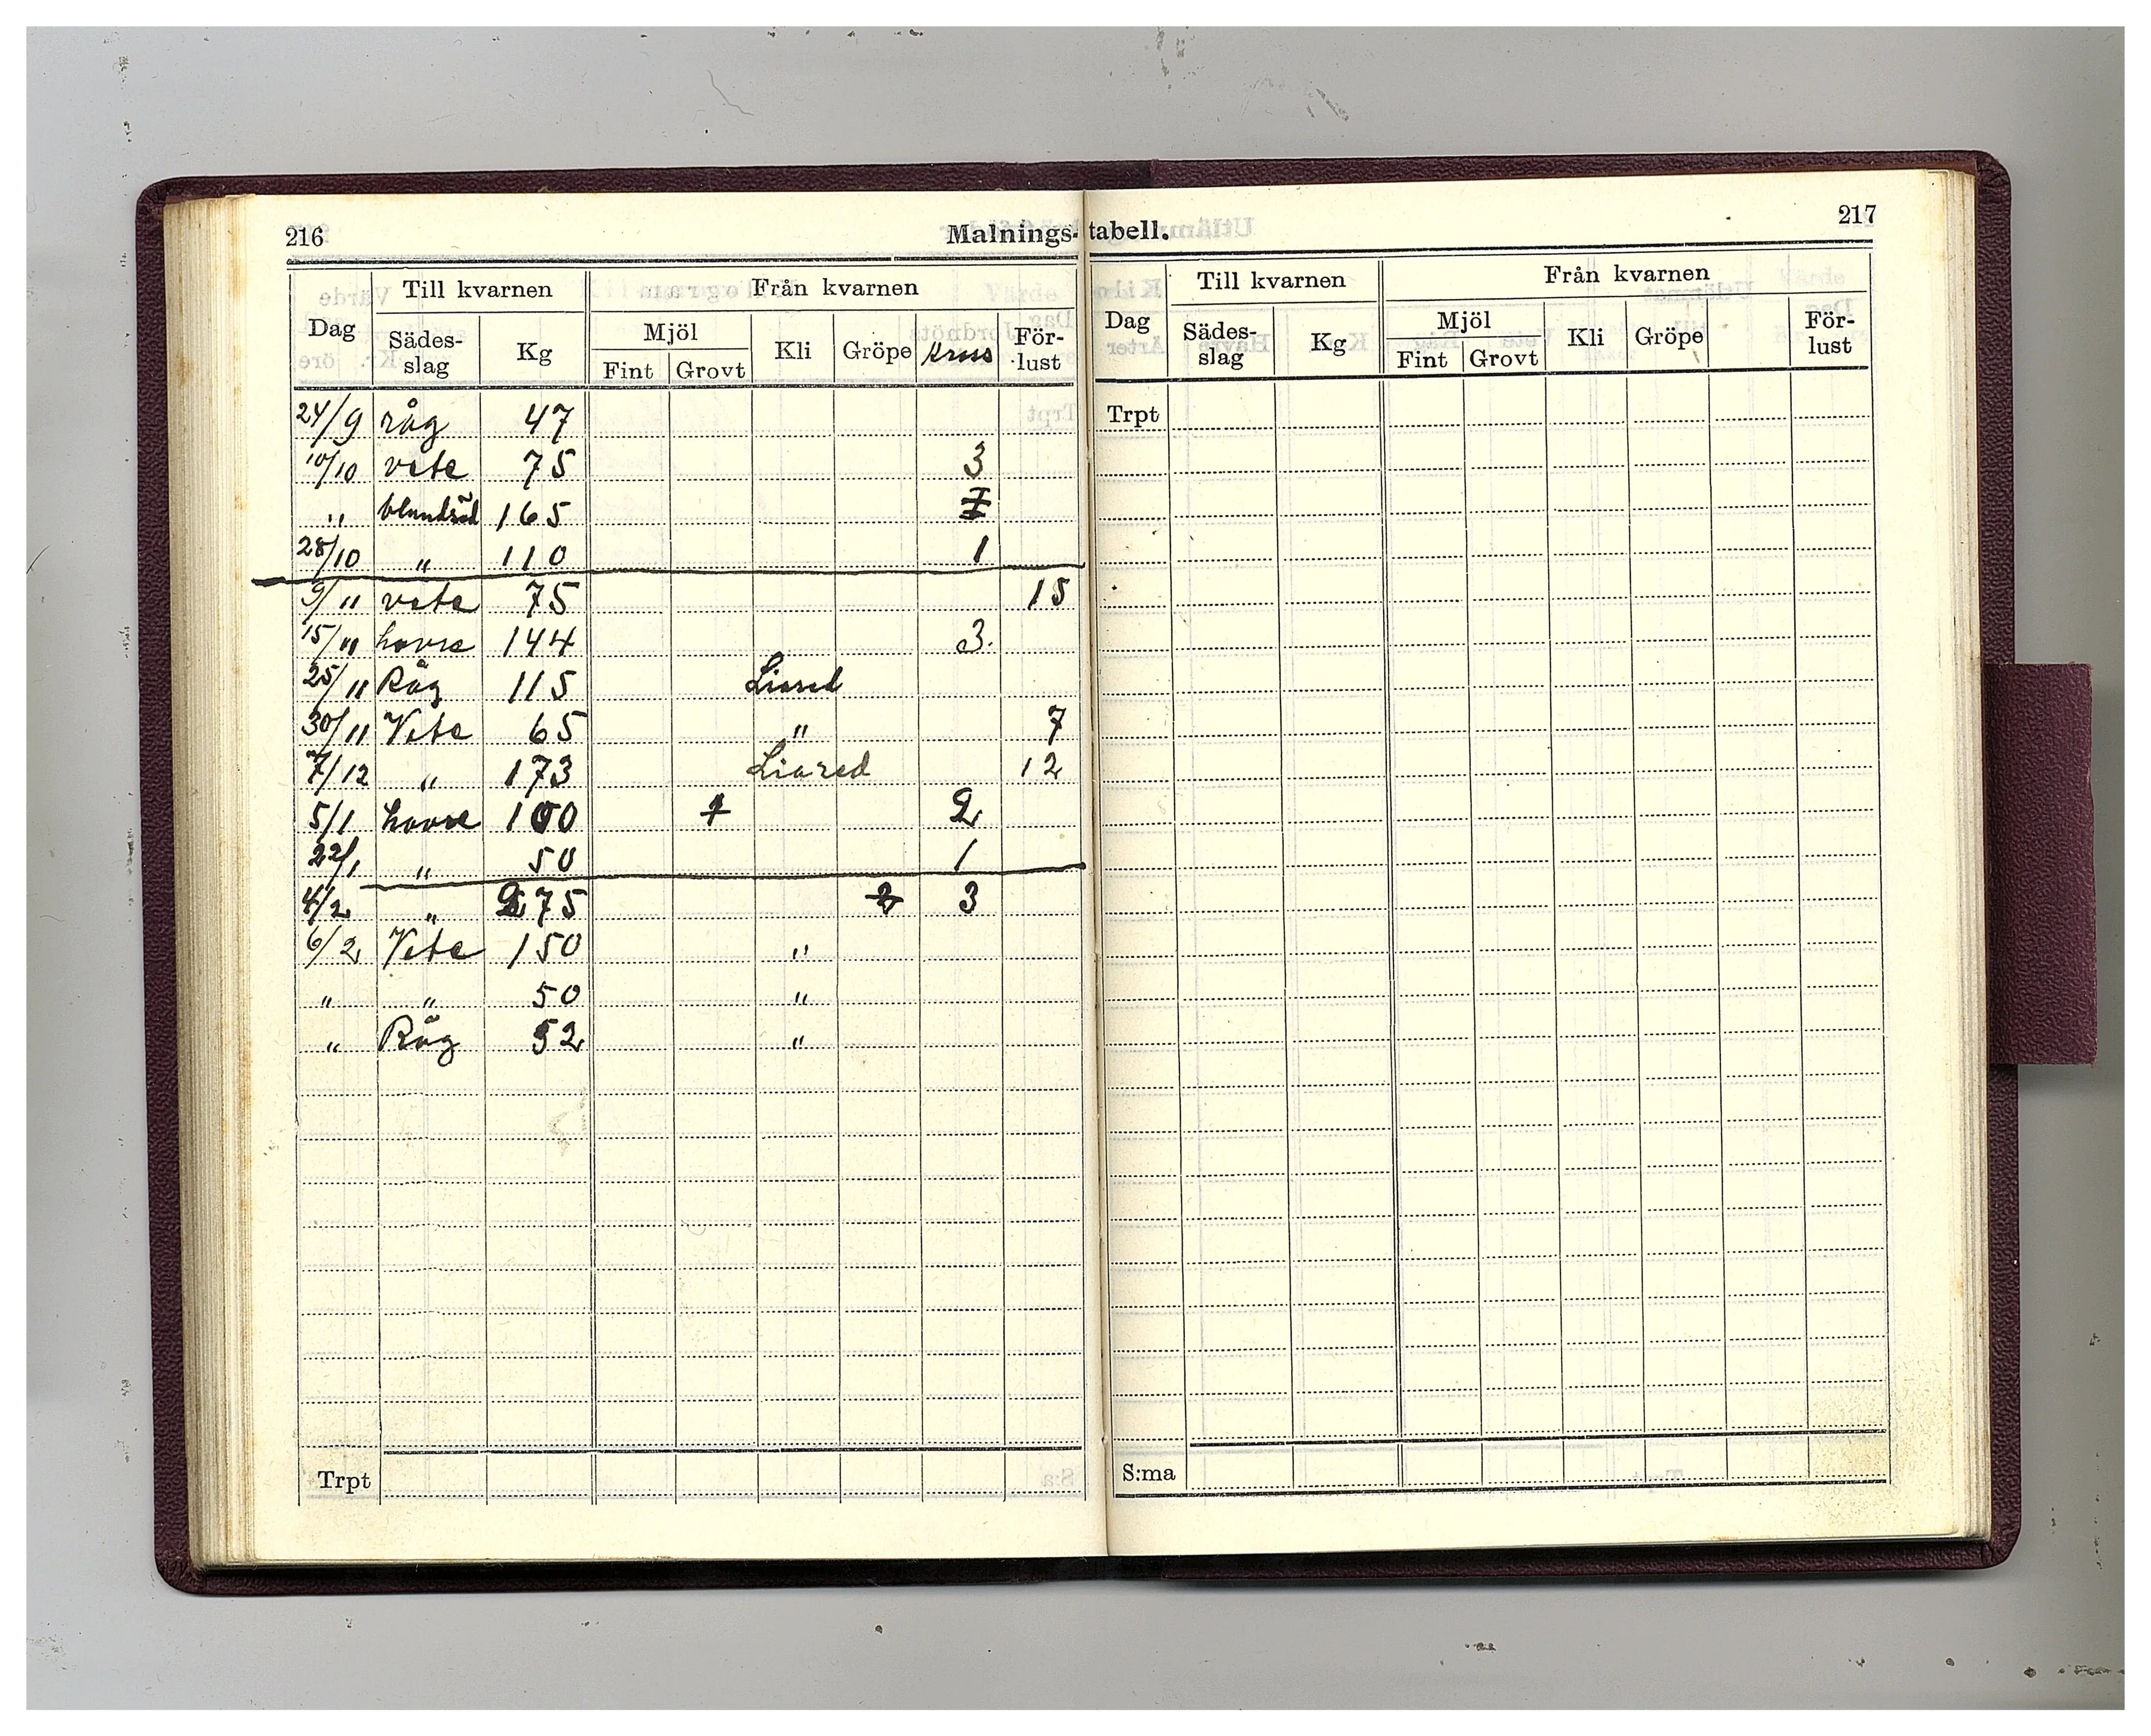 216
Malnings-tabell.
217
Dag Till kvarnen Från kvarnen
Sädes-slag Kg Mjöl Kli Gröpe Kross För-lust
Fint Grovt
24/9 råg 47
10/10 vete 75 3
" blandsäd 165 7
28/10 " 110 1
9/11 vete 75 15
15/11 havre 144 3.
25/11 Råg 115 Liared
30/11 Vete 65 " 7
7/12 " 173 Liared 12
5/1 havre 100 1 2
22/1 " 50 1
4/2 " 275 2 3
6/2 Vete 150 "
" " 50 "
" Råg 52 "
Trpt
Dag Till kvarnen Från kvarnen
Sädes-slag Kg Mjöl Kli Gröpe För-lust
Fint Grovt
Trpt
S:ma